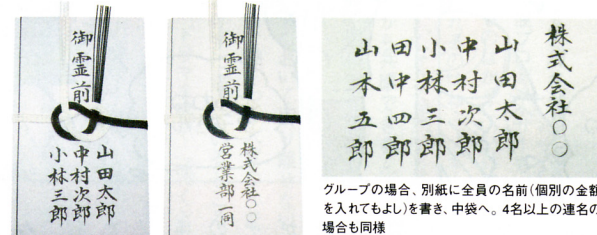 御霊前
山田太郎
中村次郎
小林三郎
御霊前
株式会社○○
営業部一同
株式会社○○
山田太郎
中村次郎
小林三郎
田中四郎
山本五郎
グループの場合、別紙に全員の名前(個別の金額
を入れてもよし)を書き、中袋へ。4名以上の連名の
場合も同様